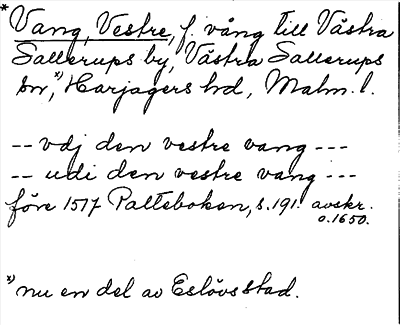 * Vang, Vestre, f. vång till Västra
Sallerups by, Västra Sallerups
sn,*) Harjagers hd, Malm. l.
-- vdj den vestre vang ---
-- udi den vestre vang ---
före 1517 Palteboken, s. 191. avskr.
o. 1650.
*) nu en del av Eslövs stad.